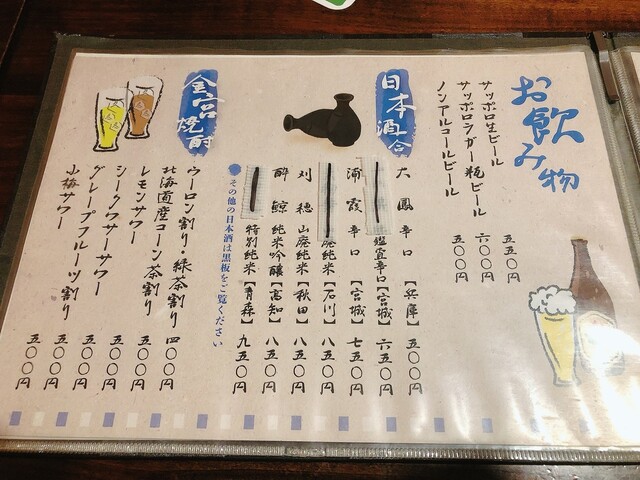 お飲み物
サッポロ生ビール 五五〇円
サッポロラガー瓶ビール 六〇〇円
ノンアルコールビール 五〇〇円
日本酒 一合
大鳳 辛口【兵庫】 五〇〇円
鑑宜辛口【宮城】 六五〇円
浦霞 辛口【宮城】 七五〇円
廃純米【石川】 八五〇円
刈穂 山廃純米【秋田】 八五〇円
酔鯨 純米吟醸【高知】 八五〇円
特別純米【青森】 九五〇円
その他の日本酒は黒板をご覧ください
金宮焼酎
ウーロン割り・緑茶割り 四〇〇円
北海道産コーン茶割り 五〇〇円
レモンサワー 五〇〇円
シークワサーサワー 五〇〇円
グレープフルーツ割り 五〇〇円
小梅サワー 五〇〇円